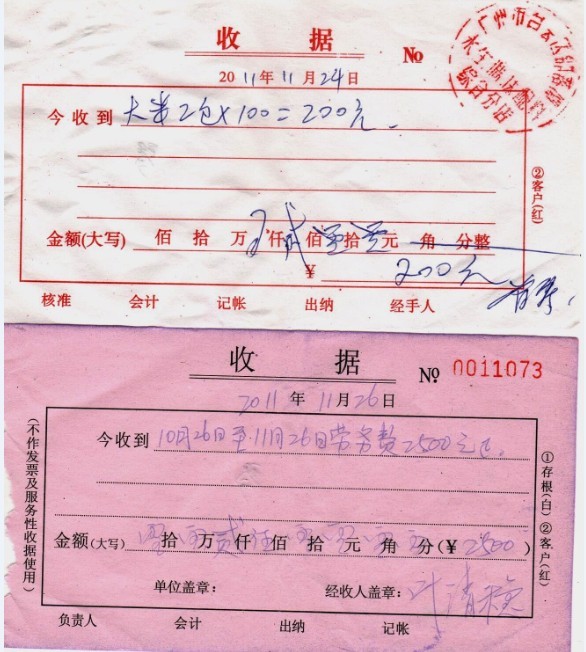 收据
№
2011年11月24日
今收到 大米2包×100=200元
②客户(红)
金额(大写) 佰 拾 万 仟 贰 佰 零 拾 零 元 角 分整
¥ 200元
核准 会计 记帐 出纳 经手人
广州市白云
水生
综合分店
收据
№ 0011073
2011年11月26日
今收到 10月26日至11月26日劳务费2500元正
(不作发票及服务性收据使用)
①存根(白)②客户(红)
金额(大写) 拾 万 贰 仟 佰 拾 元 角 分(¥2500)
单位盖章: 经收人盖章:
负责人 会计 出纳 记帐